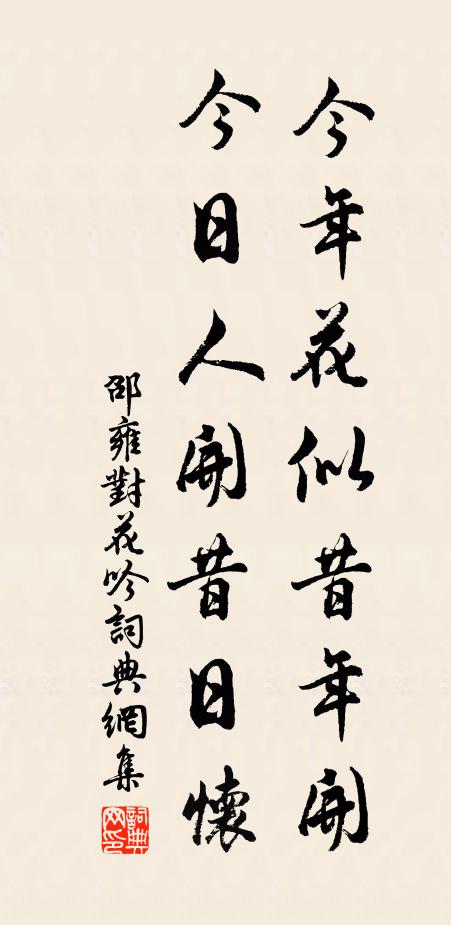 今年花似昔年開
今日人開昔日懷
邵雍對花吟詞典網集
詞典網印